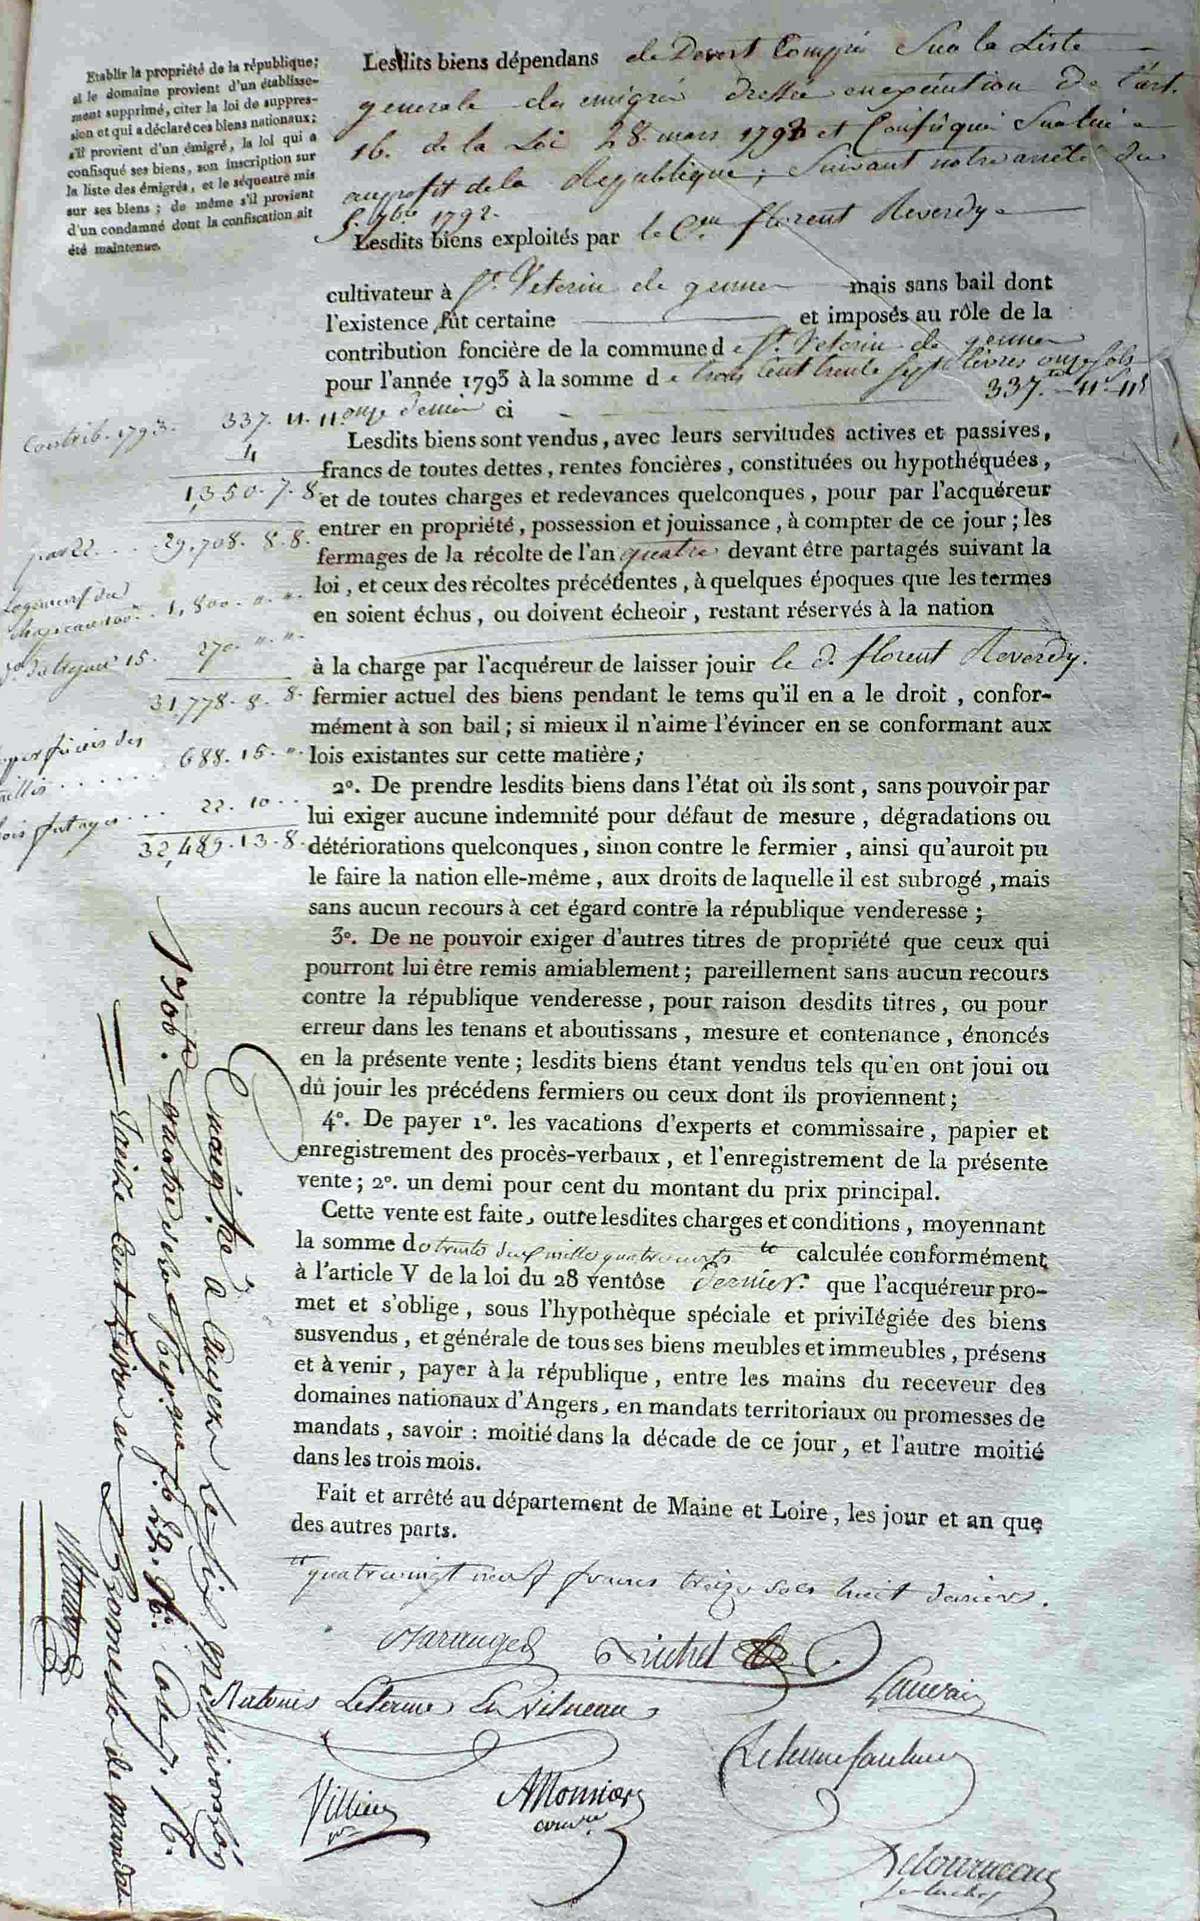 Etablir la propriété de la république;
si le domaine provient d'un établisse-
ment supprimé, citer la loi de suppres-
sion et qui a déclaré ces biens nationaux;
s'il provient d'un émigré, la loi qui a
confisqué ses biens, son inscription sur
la liste des émigrés, et le séquestre mis
sur ses biens; de même s'il provient
d'un condamné dont la confiscation ait
été maintenue.
Lesdits biens dépendans de Compris Sur la Liste
generale des emigrés dressée en exécution de l'art.
16. de la Loi 28 mars 1793 et Confisqué Sur lui
au profit de la Republique, Suivant notre arrêté du
5. 7bre 1792.
Lesdits biens exploités par le Cen florent Reverdy
cultivateur à St Veterin de genne mais sans bail dont
l'existence fût certaine et imposés au rôle de la
contribution foncière de la commune de St. Veterin de genne
pour l'année 1793 à la somme de trois cent trente sept livres onze sols
onze denier ci 337. 11. 11
Contrib. 1793. 337. 11. 11.
4
1,350. 7. 8
par 22. . . . 29,708. 8. 8.
Logement du
. . 1,800. " "
15. 270. " "
31,778. 8. 8.
688. 15. "
. . . 22. 10. .
32,489. 13. 8.
Lesdits biens sont vendus, avec leurs servitudes actives et passives,
francs de toutes dettes, rentes foncières, constituées ou hypothéquées,
et de toutes charges et redevances quelconques, pour par l'acquéreur
entrer en propriété, possession et jouissance, à compter de ce jour; les
fermages de la récolte de l'an quatre devant être partagés suivant la
loi, et ceux des récoltes précédentes, à quelques époques que les termes
en soient échus, ou doivent écheoir, restant réservés à la nation
à la charge par l'acquéreur de laisser jouir le d. florent Reverdy.
fermier actuel des biens pendant le tems qu'il en a le droit, confor-
mément à son bail; si mieux il n'aime l'évincer en se conformant aux
lois existantes sur cette matière;
2°. De prendre lesdits biens dans l'état où ils sont, sans pouvoir par
lui exiger aucune indemnité pour défaut de mesure, dégradations ou
détériorations quelconques, sinon contre le fermier, ainsi qu'auroit pu
le faire la nation elle-même, aux droits de laquelle il est subrogé, mais
sans aucun recours à cet égard contre la république venderesse;
3°. De ne pouvoir exiger d'autres titres de propriété que ceux qui
pourront lui être remis amiablement; pareillement sans aucun recours
contre la république venderesse, pour raison desdits titres, ou pour
erreur dans les tenans et aboutissans, mesure et contenance, énoncés
en la présente vente; lesdits biens étant vendus tels qu'en ont joui ou
dû jouir les précédens fermiers ou ceux dont ils proviennent;
4°. De payer 1°. les vacations d'experts et commissaire, papier et
enregistrement des procès-verbaux, et l'enregistrement de la présente
vente; 2°. un demi pour cent du montant du prix principal.
Cette vente est faite, outre lesdites charges et conditions, moyennant
la somme de trente deux mille quatre cents calculée conformément
à l'article V de la loi du 28 ventôse dernier. que l'acquéreur pro-
met et s'oblige, sous l'hypothèque spéciale et privilégiée des biens
susvendus, et générale de tous ses biens meubles et immeubles, présens
et à venir, payer à la république, entre les mains du receveur des
domaines nationaux d'Angers, en mandats territoriaux ou promesses de
mandats, savoir: moitié dans la décade de ce jour, et l'autre moitié
dans les trois mois.
Fait et arrêté au département de Maine et Loire, les jour et an que
des autres parts.
quatrevingt neuf francs treize sols huit deniers.
Enregistré à Angers Le Six Messidor
quatre de la Republique
en promesses de mandat
Villier
AMonnier